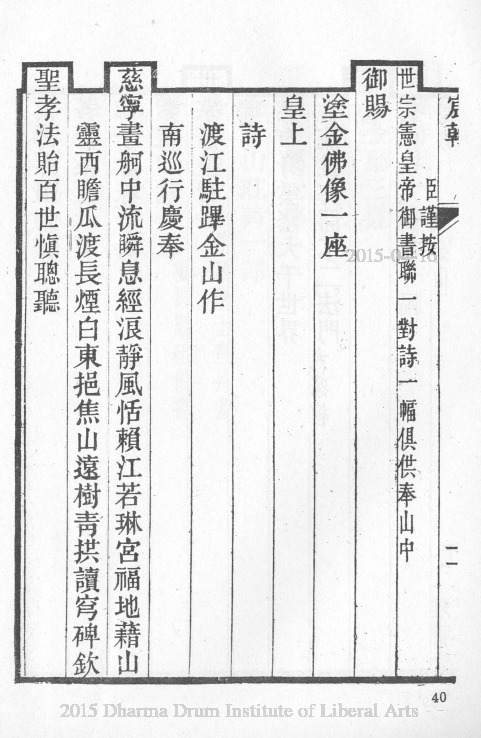 宸翰
二
臣謹按
世宗憲皇帝御書聯一對詩一幅俱供奉山中
御賜
塗金佛像一座
皇上
詩
渡江駐蹕金山作
南巡行慶奉
慈寧畫舸中流瞬息經浪靜風恬賴江若琳宮福地藉山
靈西瞻瓜渡長煙白東挹焦山遠樹靑拱讀穹碑欽
聖孝法貽百世愼聰聽
40
2015 Dharma Drum Institute of Liberal Arts